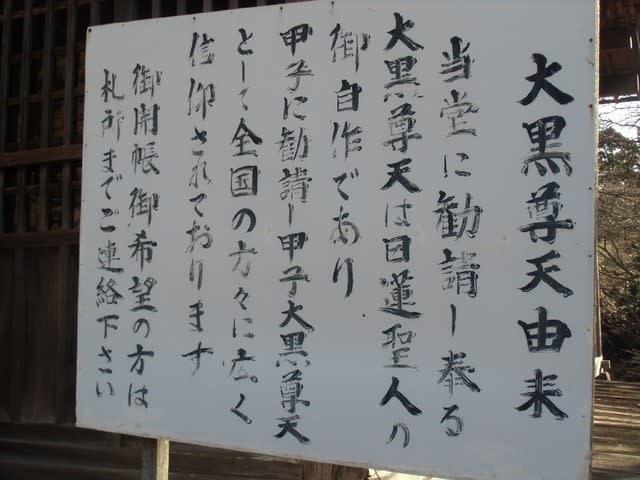 大黒尊天由来
当堂に勧請し奉る
大黒尊天は日蓮聖人の
御自作であり
甲子に勧請し甲子大黒尊天
として全国の方々に広く
信仰されております
御開帳御希望の方は
札所までご連絡下さい